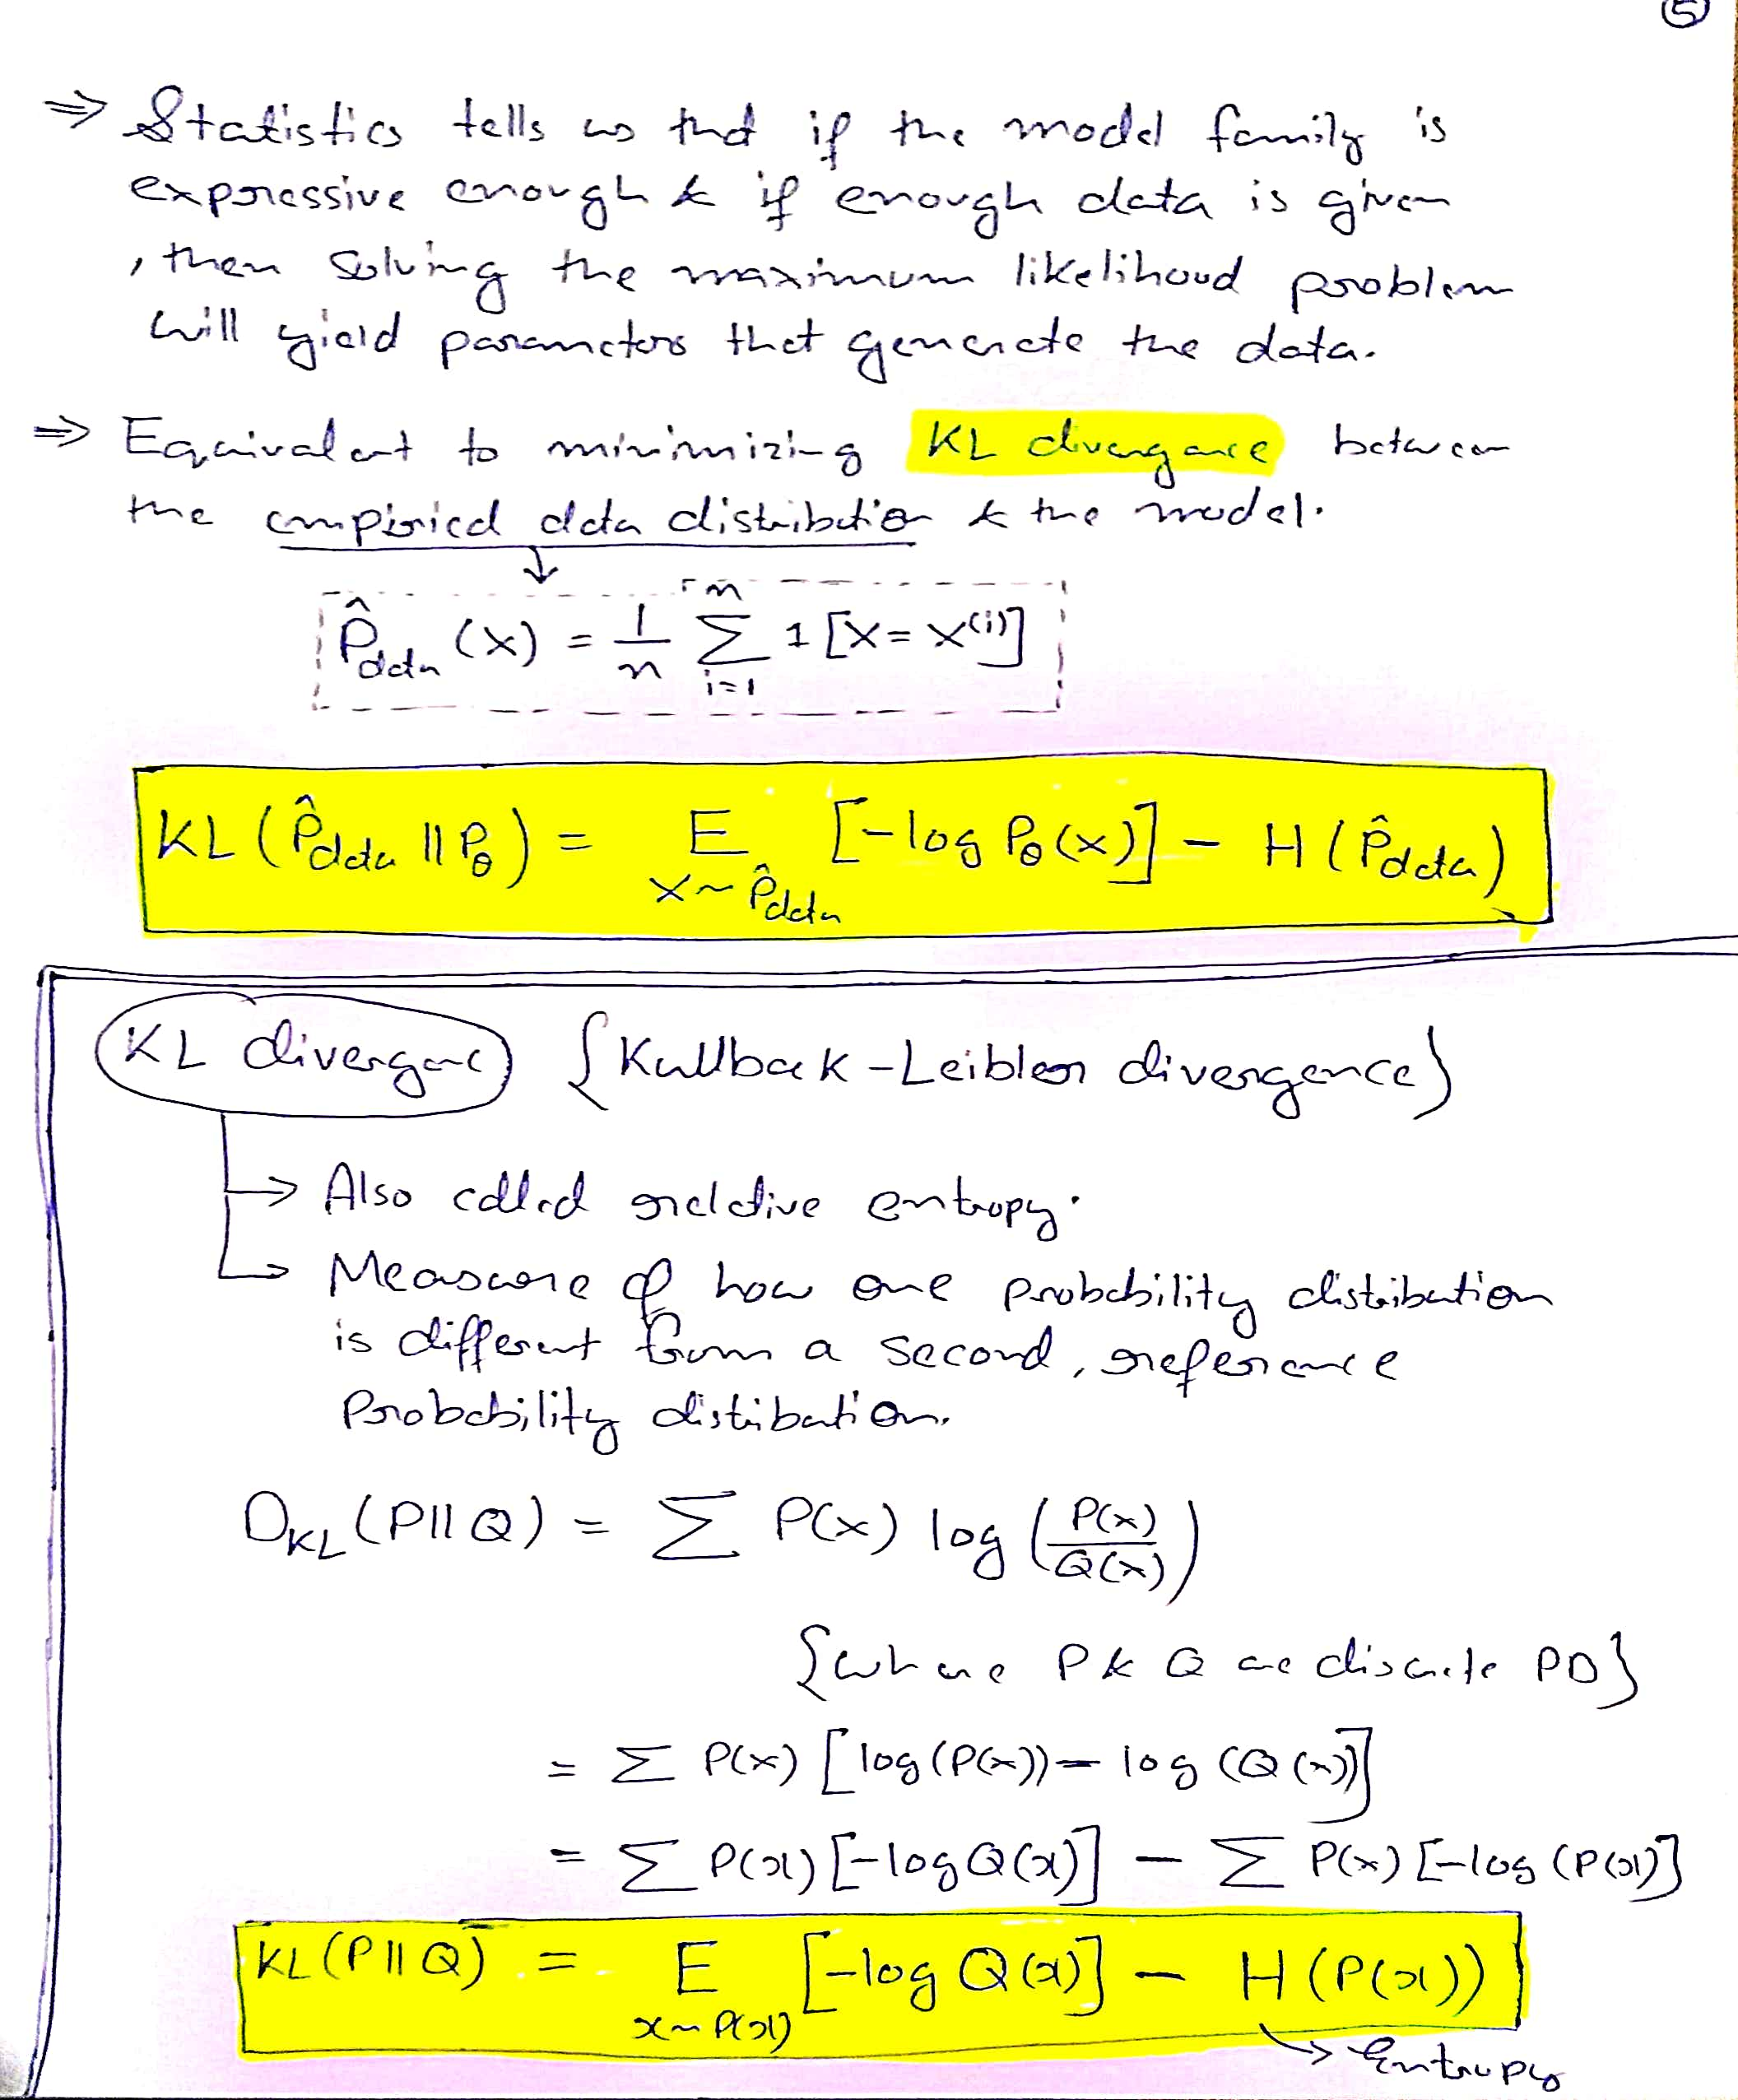 ⑤
⇒ Statistics tells us that if the model family is
expressive enough & if enough data is given
, then solving the maximum likelihood problem
will yield parameters that generate the data.
⇒ Equivalent to minimizing KL divergance between
the empirical data distribution & the model.
↓
P̂data (x) = 1/n Σ_{i=1}^{n} 1 [x = x^(i)]
KL (P̂data || Pθ) = E_{x~P̂data} [-log Pθ(x)] - H (P̂data)
KL divergence {Kullback-Leibler divergence}
→ Also called relative entropy.
→ Measure of how one probability distribution
is different from a second, reference
Probability distribution.
D_KL (P || Q) = Σ P(x) log (P(x)/Q(x))
{where P & Q are discrete PD}
= Σ P(x) [log (P(x)) - log (Q(x))]
= Σ P(x) [-log Q(x)] - Σ P(x) [-log (P(x)]
KL (P || Q) = E_{x~P(x)} [-log Q(x)] - H (P(x))
→ Entropy